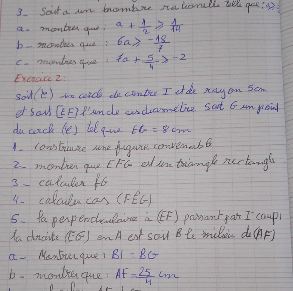 3 - Soit a un nombre rationnel tel que: a ≥
a - montrer que : a + 1/2 ≥ 1/14
b - montrer que : 6a ≥ -18/7
c - montrer que : 7a + 5/4 ≥ -2
Exercice 2:
Soit (C) un cercle de centre I et de rayon 5cm
et soit [EF] l'un de ses diamètre soit G un point
du cercle (C) tel que EG = 8 cm
1 - construire une figure convenable
2 - montrer que EFG est un triangle rectangle
3 - calculer FG
4 - calculer cos (FEG)
5 - la perpendiculaire à (EF) passant par I coupe
la droite (EG) en A et soit B le milieu de (AF)
a - Montrer que : BI = BG
b - montrer que : AF = 25/4 cm